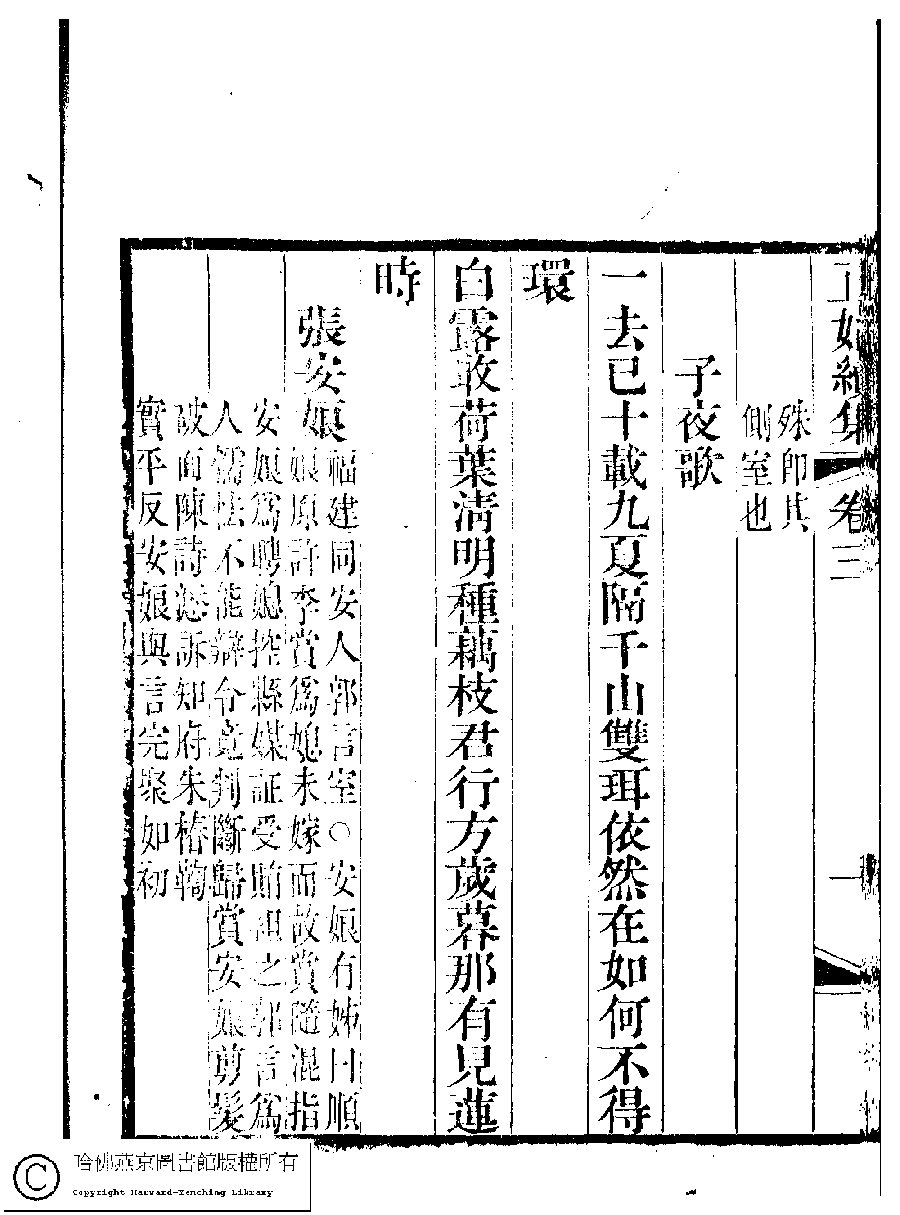 正始續集 卷三 一
殊卽其
側室也
子夜歌
一去已十載九夏隔千山雙珥依然在如何不得
環
白露收荷葉清明種藕枝君行方歲暮那有見蓮
時
張安娘 福建同安人郭言室○安娘有姊曰順
娘原許李賞爲媳未嫁而故賞隨混指
安娘爲聘媳控縣媒証受賄之郭言爲
人懦怯不能辯令竟判斷歸賞安娘剪髮
破面陳詩懇訴知府朱椿鞫
實平反安娘與言完聚如初
哈佛燕京圖書館版權所有
Copyright Harvard-Yenching Library